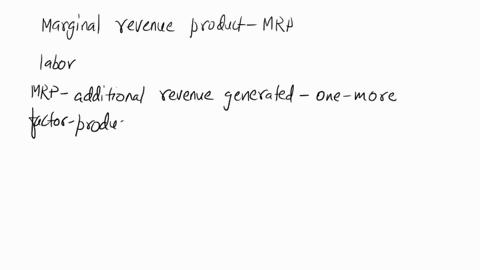 Marginal revenue product - MRP
labor
MRP - additional revenue generated - one-more
factor-produ